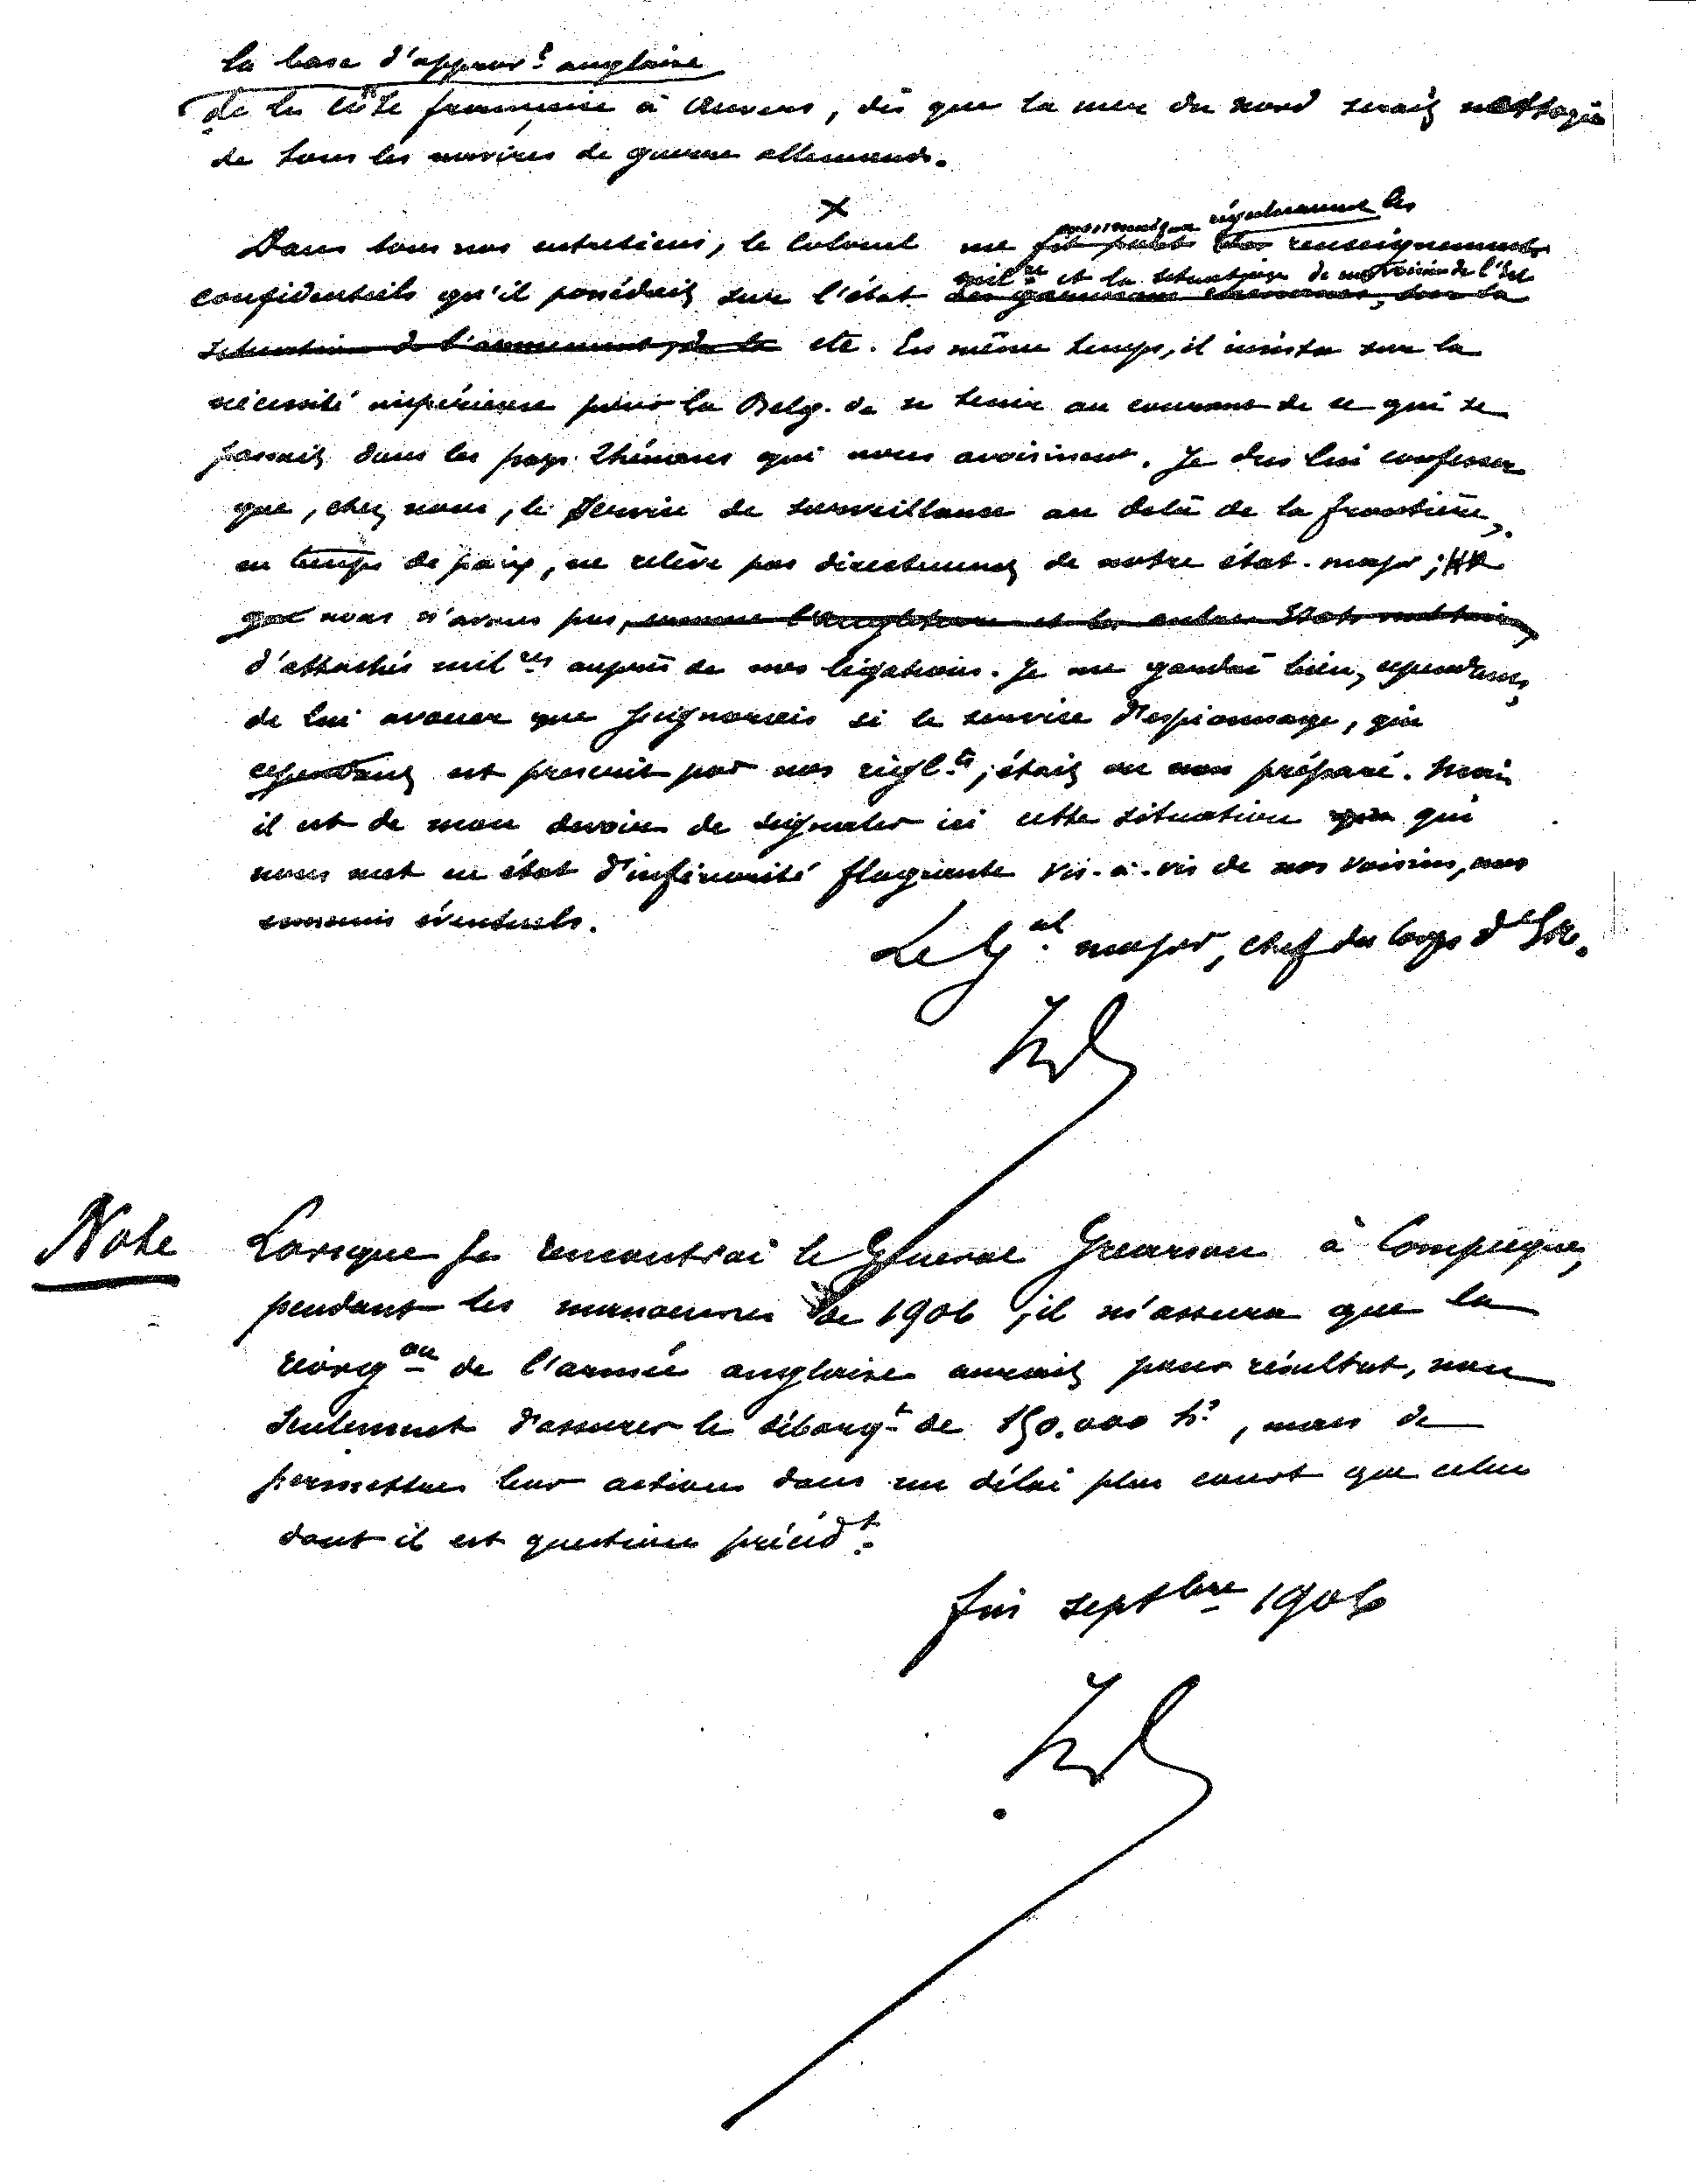 la base d'approv.t anglaise
de la côte française à Anvers, dès que la mer du nord serait nettoyée
de tous les navires de guerre allemands.
X
communiqua régulièrement les
Dans tous nos entretiens, le Colonel me fit part des renseignements
mil.res et la situation de nos voisins de l'Est
confidentiels qu'il possédait sur l'état des garnisons sur la
situation de l'armement, de la etc. En même temps, il insista sur la
nécessité impérieuse pour la Belg. de se tenir au courant de ce qui se
passait dans les pays rhénans qui nous avoisinent. Je dus lui confesser
que, chez nous, le service de surveillance au delà de la frontière,
en temps de paix, ne relève pas directement de notre état-major;
que nous n'avons pas, comme l'Angleterre et les autres États militaires,
d'attachés mil.res auprès de nos légations. Je me gardai bien, cependant,
de lui avouer que j'ignorais si le service d'espionnage, qui
cependant est prescrit par nos règl.ts, était ou non préparé. Mais
il est de mon devoir de signaler ici cette situation qui qui
nous met en état d'infériorité flagrante vis-à-vis de nos voisins, nos
ennemis éventuels.
Le G.al major, chef du Corps d'EM.
Note
Lorsque je rencontrai le Général Grearson à Compiègne,
pendant les manoeuvres de 1906, il m'assura que la
réorg.on de l'armée anglaise aurait pour résultat, non
seulement d'assurer le débarq.t de 150.000 h.s, mais de
permettre leur action dans un délai plus court que celui
dont il est question précéd.t.
fin septbre 1906